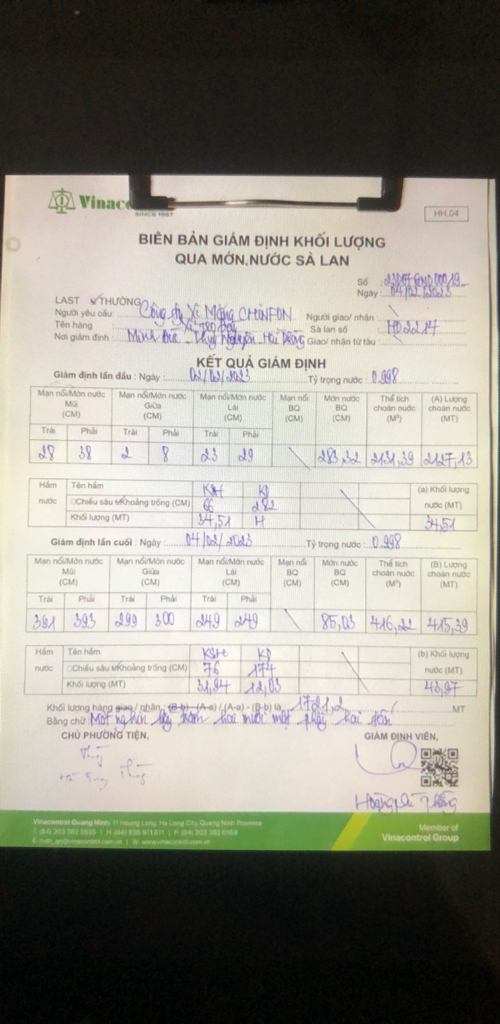 Vinaco
SINCE 1957
HH.04
BIÊN BẢN GIÁM ĐỊNH KHỐI LƯỢNG
QUA MỚN NƯỚC SÀ LAN
Số :
Ngày : 04/02/2023
LAST THƯỜNG
Người yêu cầu Công ty Xi Măng CHINFON Người giao/ nhận :
Tên hàng Sà lan số HD2217
Nơi giám định Minh Đức - Thuỷ Nguyên - Hải Phòng Giao/ nhận từ tàu :
KẾT QUẢ GIÁM ĐỊNH
Giám định lần đầu : Ngày : 02/02/2023 Tỷ trọng nước : 0.998
Mạn nổi/Mớn nước Mũi (CM) Mạn nổi/Mớn nước Giữa (CM) Mạn nổi/Mớn nước Lái (CM) Mạn nổi BQ (CM) Mớn nước BQ (CM) Thể tích choán nước (M³) (A) Lượng choán nước (MT)
Trái Phải Trái Phải Trái Phải
28 38 2 8 23 29 283,32 2131,39 2127,13
Hầm nước Tên hầm KSH KP (a) Khối lượng nước (MT)
Chiều sâu Khoảng trống (CM) 66 282
Khối lượng (MT) 34,51 H 34,51
Giám định lần cuối : Ngày : 04/02/2023 Tỷ trọng nước : 0.998
Mạn nổi/Mớn nước Mũi (CM) Mạn nổi/Mớn nước Giữa (CM) Mạn nổi/Mớn nước Lái (CM) Mạn nổi BQ (CM) Mớn nước BQ (CM) Thể tích choán nước (M³) (B) Lượng choán nước (MT)
Trái Phải Trái Phải Trái Phải
391 393 299 300 249 249 85,03 416,22 415,39
Hầm nước Tên hầm KSH KP (b) Khối lượng nước (MT)
Chiều sâu Khoảng trống (CM) 76 174
Khối lượng (MT) 31,94 12,03 43,97
Khối lượng hàng giao/ nhận, (B-b) - (A-a) / (A-a) - (B-b) là 1721,2 MT
Bằng chữ Một nghìn bảy trăm hai mươi mốt phẩy hai tấn
CHỦ PHƯƠNG TIỆN, GIÁM ĐỊNH VIÊN,
Vinacontrol Quang Ninh: 11 Hoang Long, Ha Long City, Quang Ninh Province
Member of
Vinacontrol Group